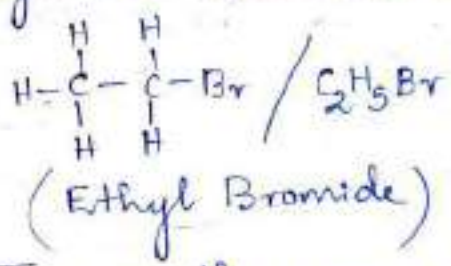 H H
H-C-C-Br / C2H5Br
H H
(Ethyl Bromide)